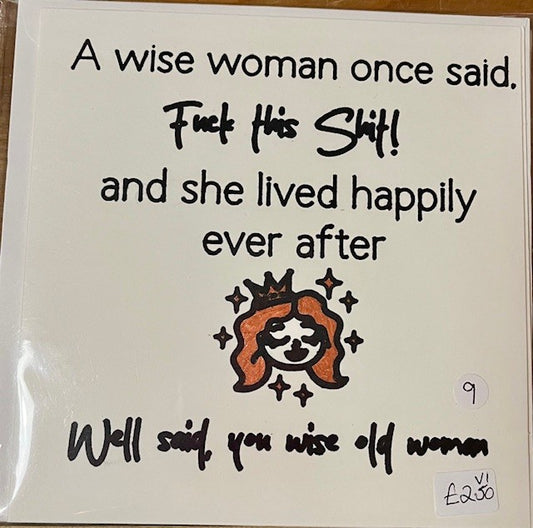 A wise woman once said,
Fuck this Shit!
and she lived happily
ever after
9
Well said, you wise old woman
VI
£2.50